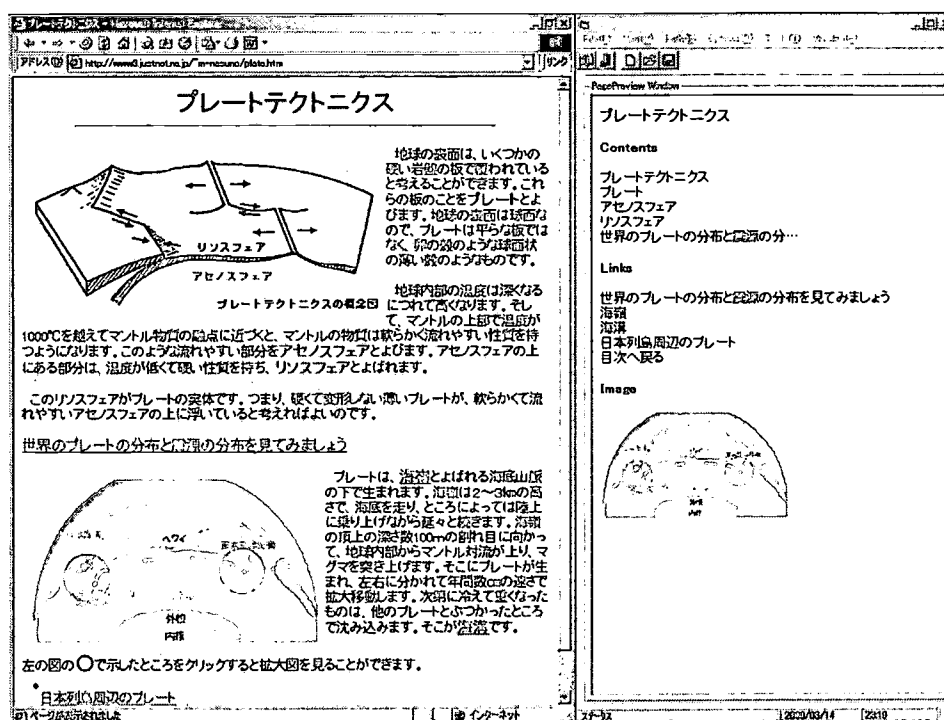 アドレス(D) http://www3.justnet.ne.jp/~m-nasuno/plate.htm
リンク
プレートテクトニクス
地球の表面は、いくつかの
硬い岩盤の板で覆われている
と考えることができます。これ
らの板のことをプレートとよ
びます。地球の表面は球面な
ので、プレートは平らな板では
なく、卵の殻のような球面状
の薄い殻のようなものです。
リソスフェア
アセノスフェア
プレートテクトニクスの概念図
地球内部の温度は深くなる
につれて高くなります。そし
て、マントルの上部で温度が
1000℃を越えてマントル物質の融点に近づくと、マントルの物質は軟らかく流れやすい性質を持
つようになります。このような流れやすい部分をアセノスフェアとよびます。アセノスフェアの上
にある部分は、温度が低くて硬い性質を持ち、リソスフェアとよばれます。
このリソスフェアがプレートの実体です。つまり、硬くて変形しない薄いプレートが、軟らかくて流
れやすいアセノスフェアの上に浮いていると考えればよいのです。
世界のプレートの分布と震源の分布を見てみましょう
プレートは、海嶺とよばれる海底山脈
の下で生まれます。海嶺は2～3kmの高
さで、海底を走り、ところによっては陸上
に乗り上げながら延々と続きます。海嶺
の頂上の深さ数100mの割れ目に向かっ
て、地球内部からマントル対流が上り、マ
グマを突き上げます。そこにプレートが生
まれ、左右に分かれて年間数cmの速さで
拡大移動します。次第に冷えて重くなった
ものは、他のプレートとぶつかったところ
で沈み込みます。そこが海溝です。
ハワイ
外核
内核
左の図の○で示したところをクリックすると拡大図を見ることができます。
日本列島周辺のプレート
ページが表示されました
インターネット
PagePreview Window
プレートテクトニクス
Contents
プレートテクトニクス
プレート
アセノスフェア
リソスフェア
世界のプレートの分布と震源の分…
Links
世界のプレートの分布と震源の分布を見てみましょう
海嶺
海溝
日本列島周辺のプレート
目次へ戻る
Image
外核
内核
ステータス
2000/03/14